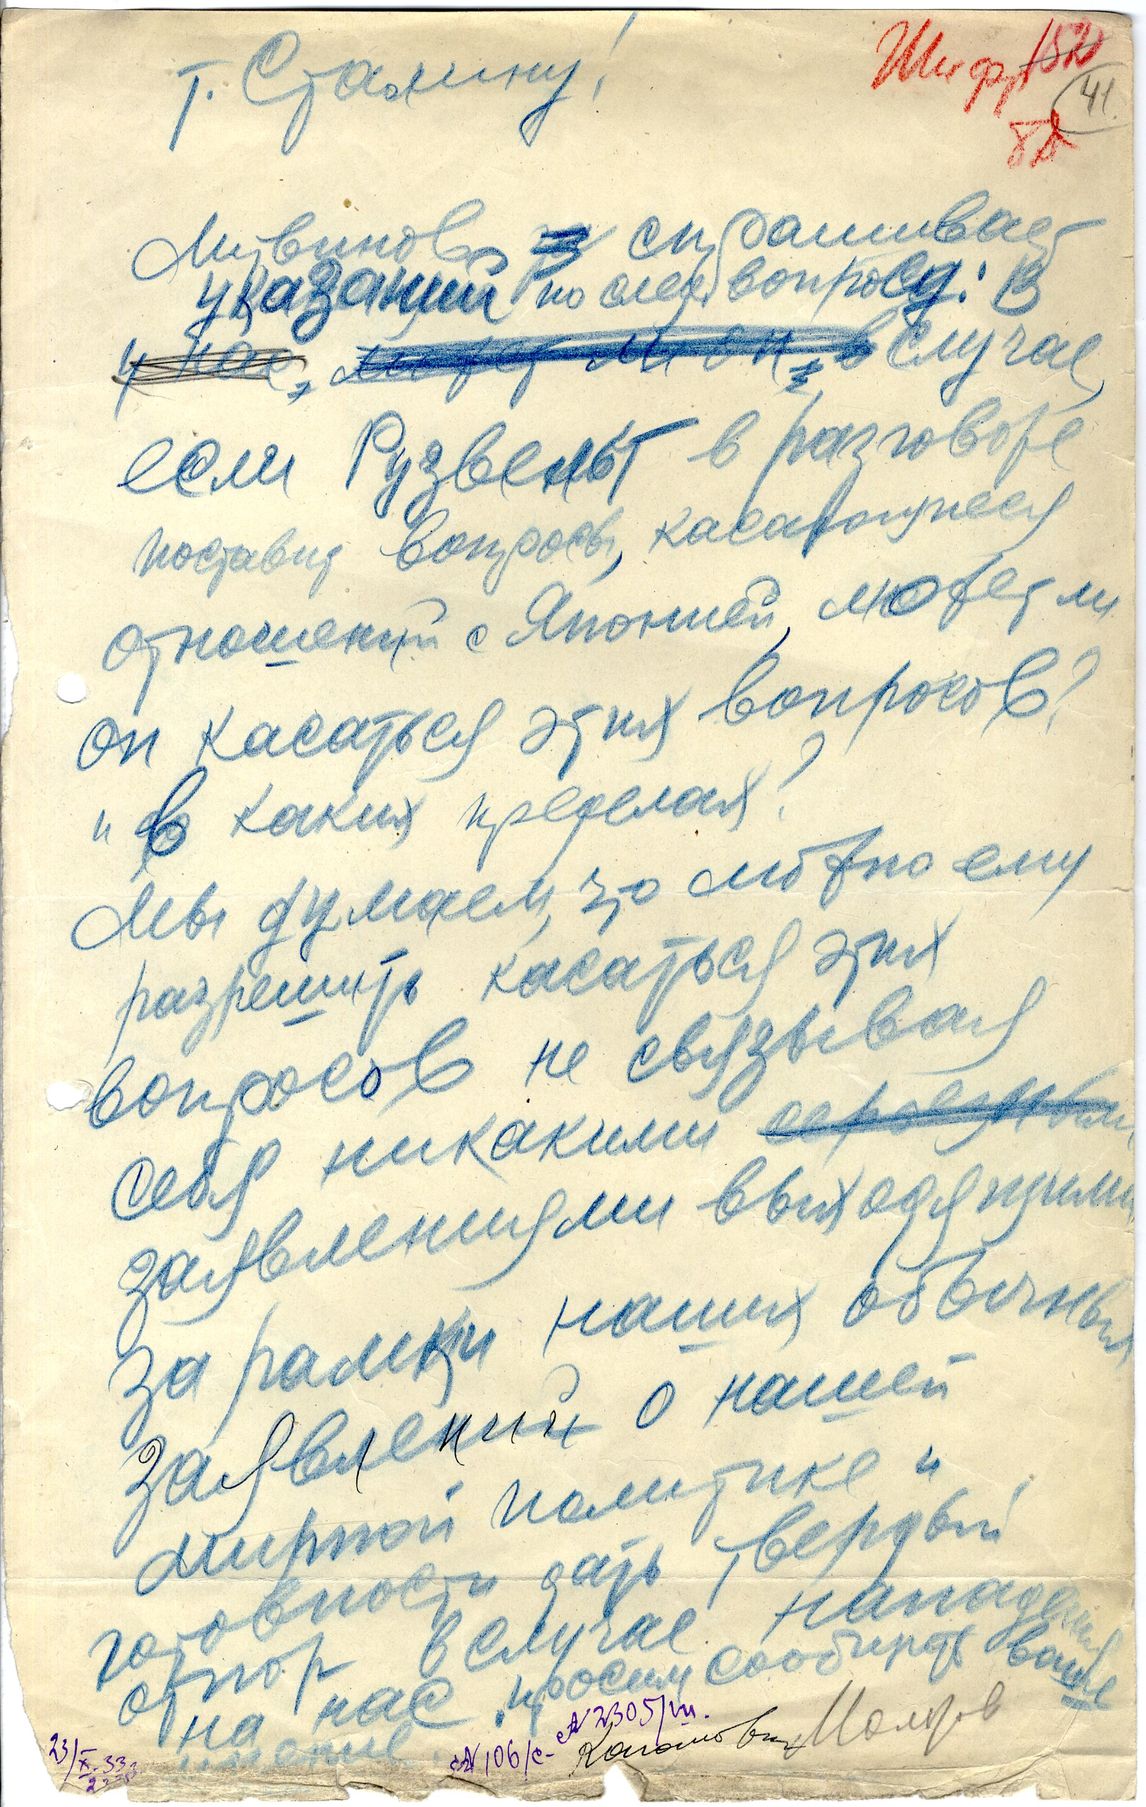 т. Сталину!
Шифр
41
Литвинов спрашивает
указаний по след вопросу: В
у нас, может ли он, в случае,
если Рузвельт в разговоре
поставит вопросы, касающиеся
отношений с Японией, может ли
он касаться этих вопросов?
и в каких пределах?
Мы думаем, что можно ему
разрешить касаться этих
вопросов не связывая
себя никакими
заявлениями выходящими
за рамки наших обычных
заявлений о нашей
мирной политике и
готовности дать твердый
отпор в случае нападения
на нас. Просим сообщить ваше
мнение.
№2305/ш.
Каганович Молотов
№106/с
23/X-33